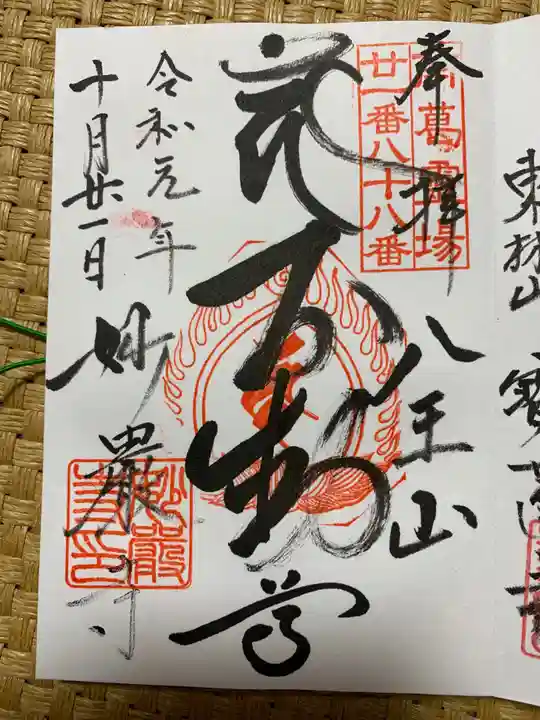 東林山
奉拝
八王山
南葛霊場
廿一番八十八番
不動尊
令和元年
十月廿一日
妙巖寺
妙巖
寺印